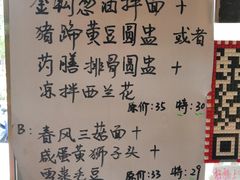 金钩葱油拌面 +
猪蹄黄豆圆盅 或者
药膳排骨圆盅 +
凉拌西兰花
原价:35 特:30
B:
春风三菇面 +
咸蛋黄狮子头 +
雪菜毛豆 原价:33 特:29